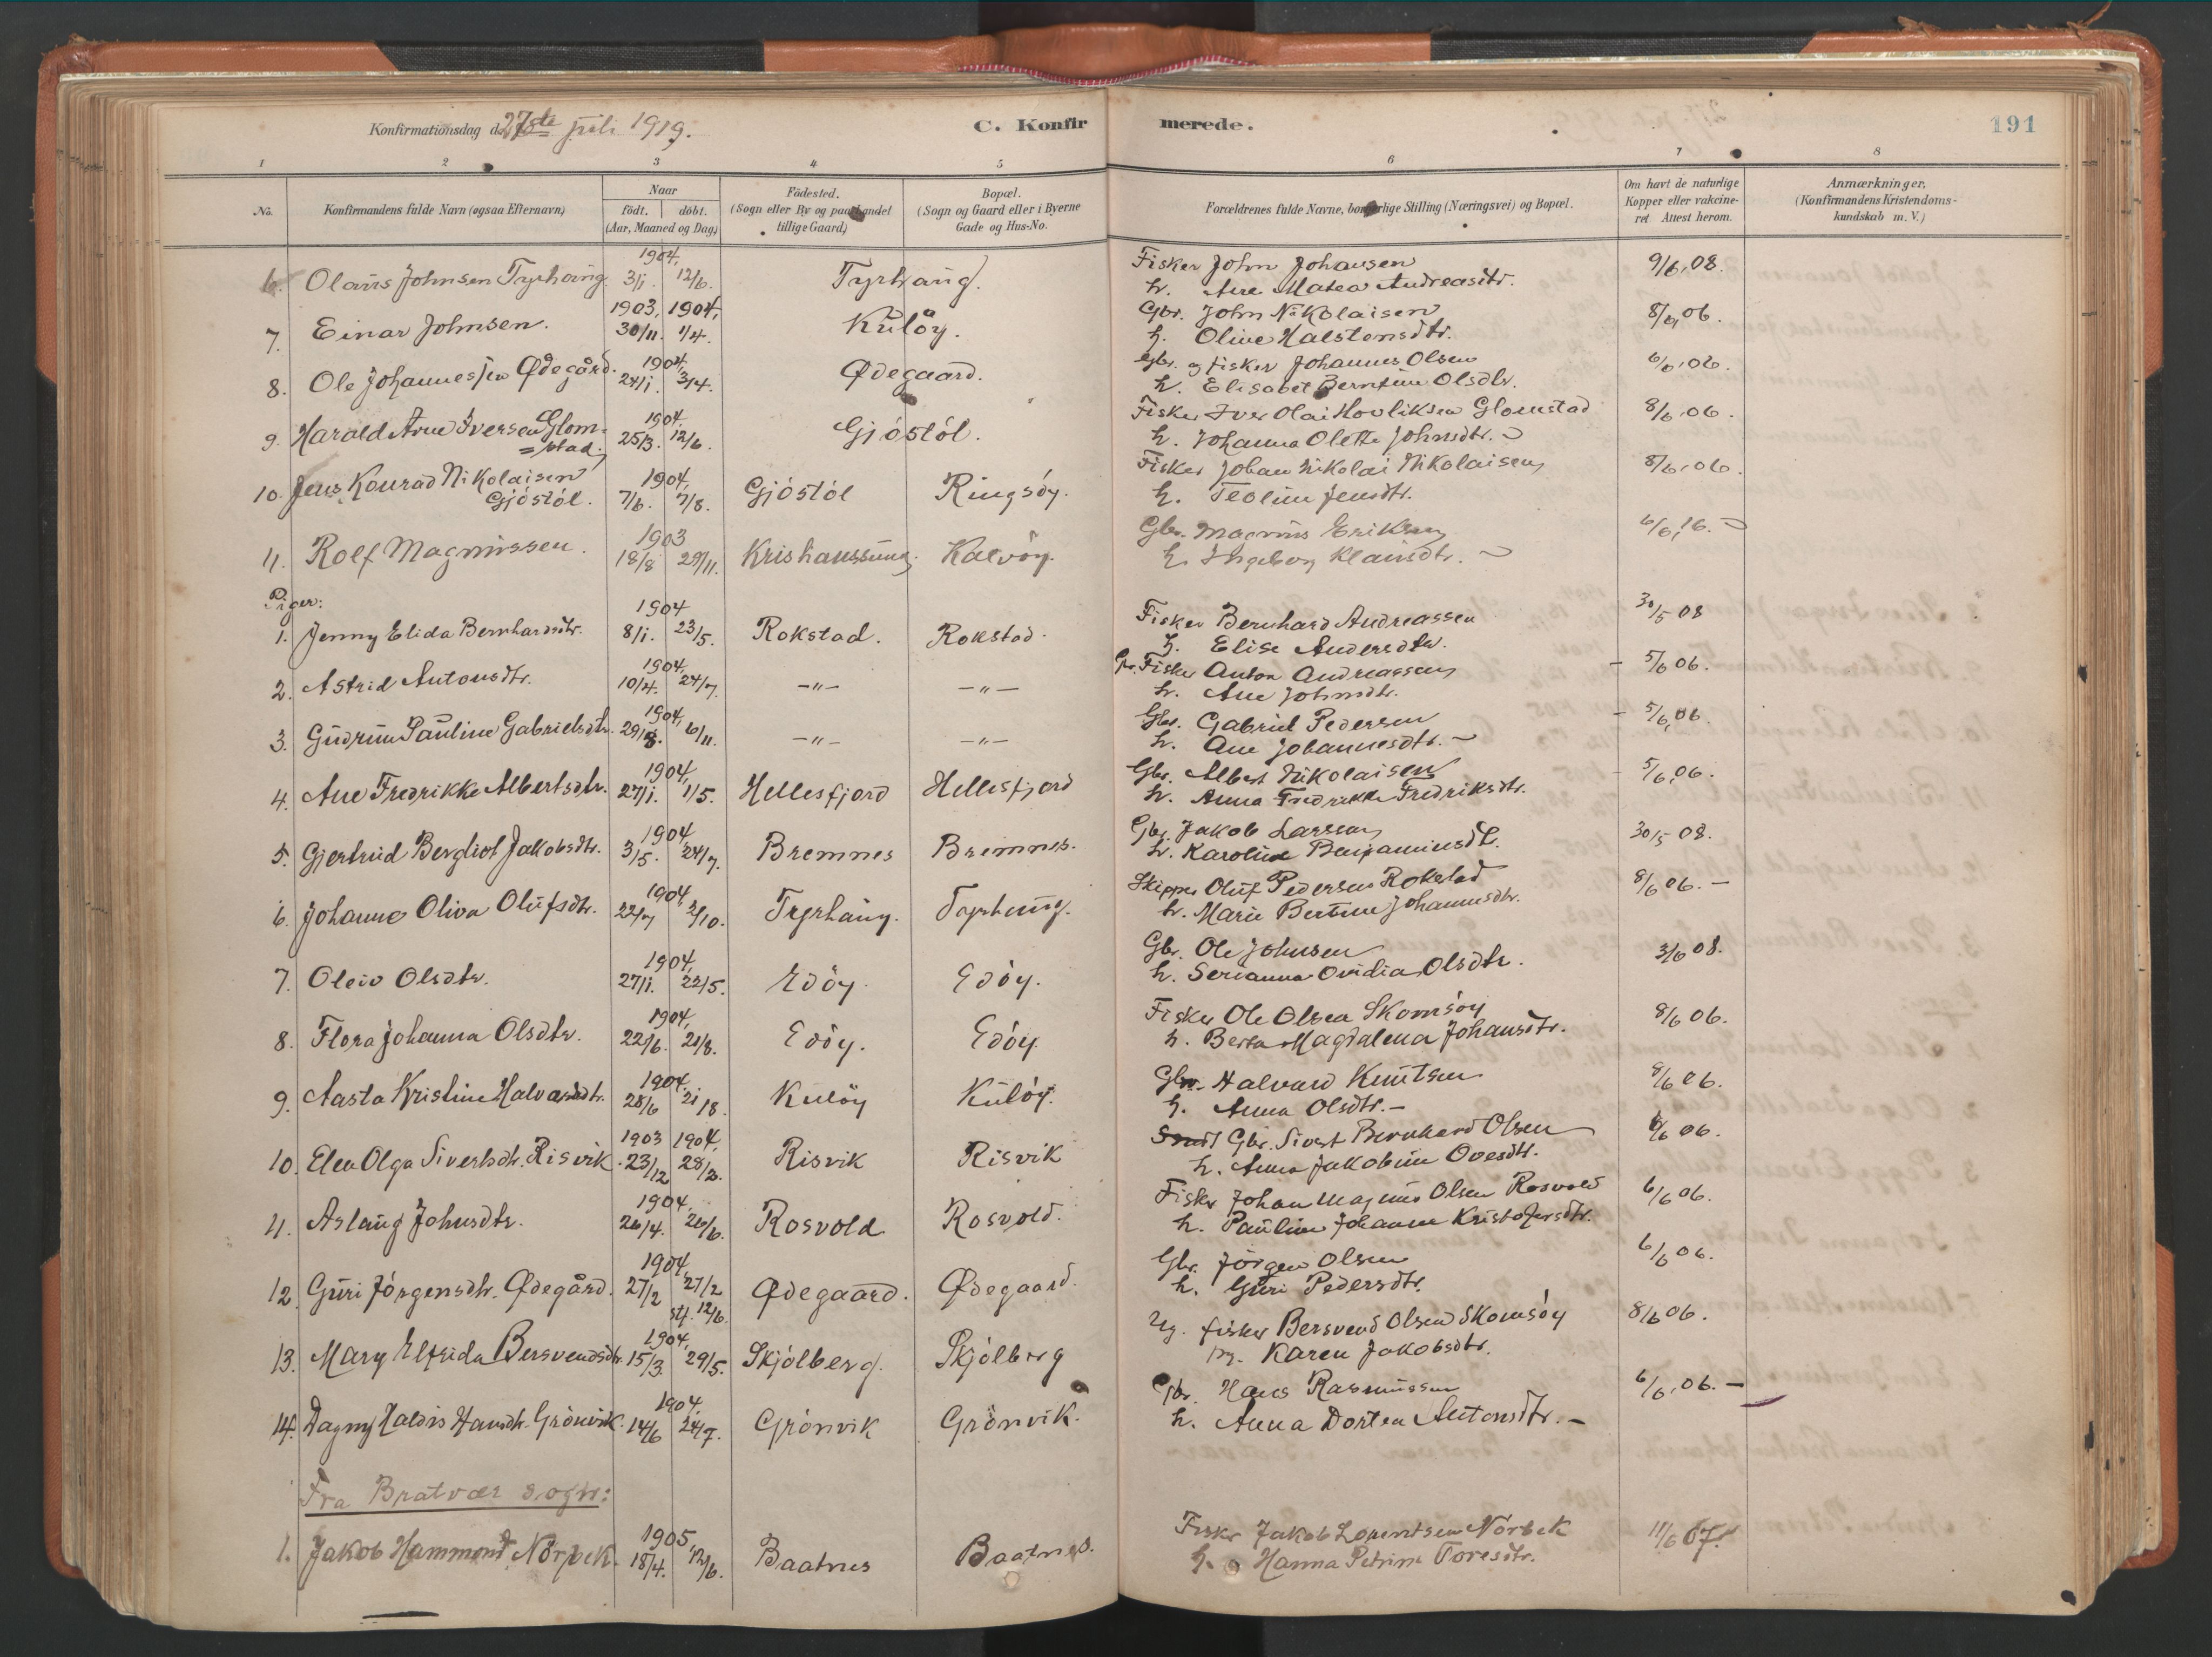 Konfirmationsdag d. 27de juli 1919. C. Konfirmerede. 191
1 2 3 4 5 6 7 8
No. Konfirmandens fulde Navn (ogsaa Efternavn) Naar födt. döbt. (Aar, Maaned og Dag) Födested. (Sogn eller By og paa Landet tillige Gaard) Bopæl. (Sogn og Gaard eller i Byerne Gade og Hus-No. Forældrenes fulde Navne, borgerlige Stilling (Næringsvei) og Bopæl. Om havt de naturlige Kopper eller vakcineret Attest herom. Anmærkninger. (Konfirmandens Kristendomskundskab m. V.)
1904,
6. Olaus Johnsen Tyrhaug. 3/1. 12/6. Tyrhaug. Fisker John Johansen 9/6, 08.
h. Ane Matea Andreasdtr.
1903, 1904,
7. Einar Johnsen. 30/11. 1/4. Kulöy. Gbr. John Nikolaisen 8/6, 06.
h. Olive Halstensdtr.
1904,
8. Ole Johannessen Ødegård. 24/1. 3/4. Ødegaard. Gbr. og fisker Johannes Olsen 6/6, 06.
h. Elisabet Berntine Olsdtr.
1904,
9. Harald Arne Iversen Glom- 25/3. 12/6. Gjöstöl. Fisker Iver Olai Hovliksen Glomstad 8/6, 06.
=stad. h. Johanna Olette Johnsdtr.
10. Jens Konrad Nikolaisen 1904, Fisker Johan Nikolai Nikolaisen 8/6, 06.
Gjöstöl. 7/6. 7/8. Gjöstöl Ringsöy. h. Teoline Jensdtr.
1903
11. Rolf Magnussen. 18/8 29/11. Kristianssund Kalvöy. Gbr. Magnus Eriksen 6/6, 16.
h. Ingeborg Klausdtr.
Piger:
1904
1. Jenny Elida Bernhardsdtr. 8/1. 23/5. Rokstad. Rokstad. Fisker Bernhard Andreassen 30/5 08
h. Elise Andersdtr.
1904,
2. Astrid Antonsdtr. 10/4. 24/7. —"— —"— Gbr. Fisker Anton Andreassen – 5/6 06.
h. Ane Johnsdtr.
1904,
3. Gudrun Pauline Gabrielsdtr. 29/8. 6/11. —"— —"— Gbr. Gabriel Pedersen – 5/6, 06.
h. Ane Johannesdtr.
1904,
4. Ane Fredrikke Albertsdtr. 27/1. 1/5. Hellesfjord Hellesfjord Gbr. Albert Nikolaisen – 5/6, 06.
h. Anna Fredrikke Fredriksdtr.
1904,
5. Gjertrud Bergliot Jakobsdtr. 3/5. 24/7. Bremnes Bremnes. Gbr. Jakob Larssen 30/5 08.
h. Karoline Benjaminsdtr.
1904,
6. Johanne Oliva Olufsdtr. 22/7 2/10. Tyrhaug. Tyrhaug. Skipper Oluf Pedersen Rokstad 8/6 06. –
h. Marie Bertine Johannesdtr.
1904,
7. Oleiv Olsdtr. 27/1. 22/5. Edöy. Edöy. Gbr. Ole Johnsen 3/6 08.
h. Serianna Ovidia Olsdtr.
1904,
8. Flora Johanna Olsdtr. 22/6. 21/8. Edöy. Edöy. Fisker Ole Olsen Skomsöy 8/6 06.
h. Berta Magdalena Johansdtr.
1904,
9. Aasta Kristine Halvardsdtr. 28/6 21/8. Kulöy Kulöy. Gbr. Halvard Knutsen 8/6 06.
h. Anna Olsdtr. –
1903 1904,
10. Elen Olga Sivertsdtr. Risvik. 23/12 28/2. Risvik Risvik Gbr. Sivert Bernhard Olsen 6/6 06.
h. Anna Jakobine Ovesdtr.
1904,
11. Aslaug Johnsdtr. 26/4. 26/6. Rosvold Rosvold. Fisker Johan Magnus Olsen Rosvold 6/6 06.
h. Pauline Johanne Kristofersdtr.
1904,
12. Guri Jörgensdtr. Ødegård. 27/2 27/2 Ødegaard. Ødegaard. Gbr. Jörgen Olsen 6/6 06.
stf. 12/6. h. Guri Pedersdtr.
1904,
13. Mary Elfrida Bersvendsdtr. 15/3. 29/5. Skjölberg. Skjölberg Ug. fisker Bersvend Olsen Skomsöy 8/6 06.
pg. Karen Jakobsdtr.
1904,
14. Dagny Haldis Hansdtr. Grönvik. 14/6 24/7. Grönvik Grönvik. Gbr. Hans Rasmussen 6/6, 06. –
h. Anna Dortea Antonsdtr. –
Fra Bratvær sogn:
1905,
1. Jakob Hammond Nörbek. 18/4. 12/6. Baatnes Baatnes. Fisker Jakob Lorentsen Nörbek 11/6 07.
h. Hanna Petrine Toresdtr.